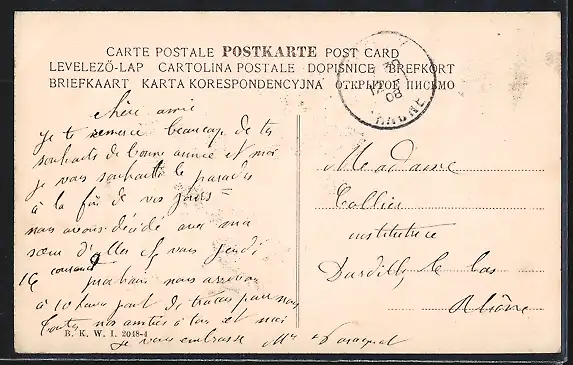 CARTE POSTALE POSTKARTE POST CARD
LEVELEZŐ-LAP CARTOLINA POSTALE DOPISNICE BREFKORT
BRIEFKAART KARTA KORESPONDENCYJNA ОТКРЫТОЕ ПИСЬМО
08
RHONE
Chère amie
je te remercie beaucoup de tes
souhaits de bonne année et moi
je vous souhaite le paradis
à la fin de vos jours
nous avons décidé avec ma
sœur d'aller vous jeudi
16 courant prochain nous
à 10 part de
nos amitiés à et moi
je vous embrasse Mme
B. K. W. I. 2048-4
Madame
Collier
institutrice
Dardilly le bas
Rhône